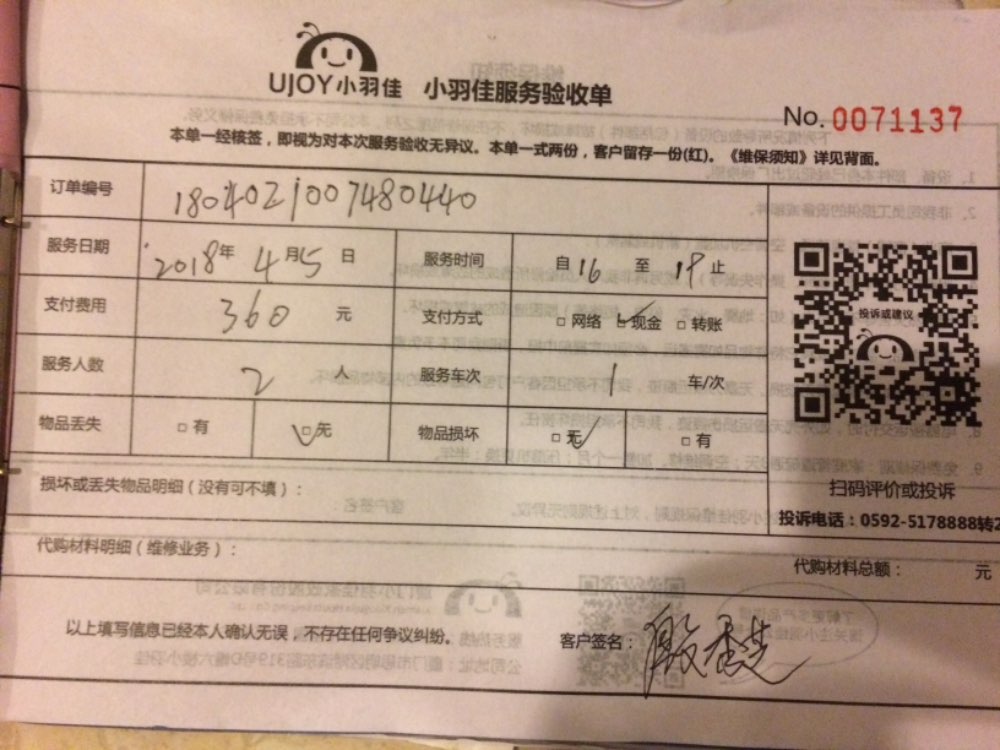 UJOY小羽佳 小羽佳服务验收单
No.0071137
本单一经核签，即视为对本次服务验收无异议。本单一式两份，客户留存一份(红)。《维保须知》详见背面。
订单编号 18040210077480440
服务日期 2018年 4月5日 服务时间 自16至19止
支付费用 360 元 支付方式 □网络 □现金 □转账
服务人数 2 人 服务车次 1 车/次
物品丢失 □有 □无 物品损坏 □无 □有
投诉或建议
扫码评价或投诉
损坏或丢失物品明细（没有可不填）：
投诉电话：0592-5178888转2
代购材料明细（维修业务）：
代购材料总额： 元
以上填写信息已经本人确认无误，不存在任何争议纠纷。 客户签名：